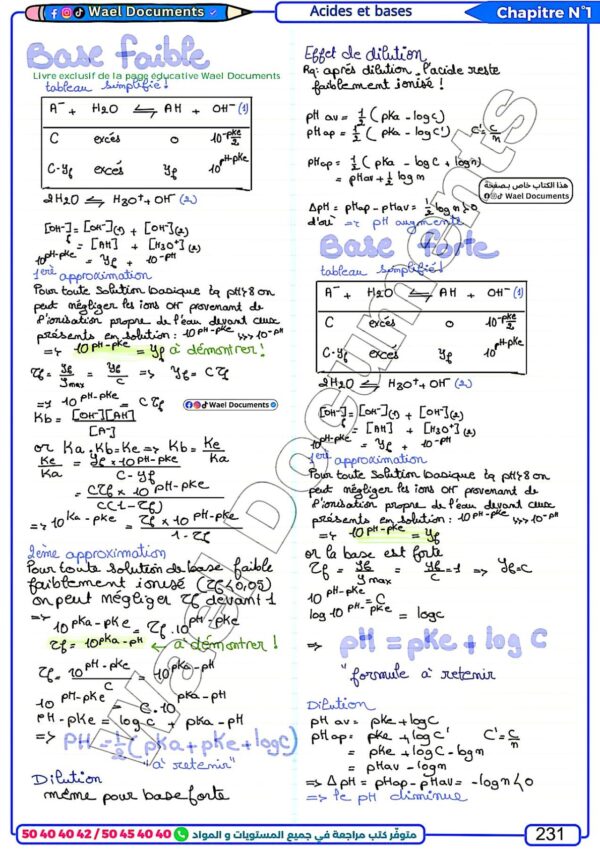 Wael Documents
Acides et bases
Chapitre N°1
Base faible
Livre exclusif de la page éducative Wael Documents
tableau simplifié !
A⁻ + H2O ⇌ AH + OH⁻ (1)
C excés 0 10^-pKe/2
C-yf excés yf 10^pH-pKe
2H2O ⇌ H3O⁺ + OH⁻ (2)
[OH⁻]f = [OH⁻](1) + [OH⁻](2)
= [AH] + [H3O⁺](2)
10^pH-pKe = yf + 10^-pH
1ère approximation
Pour toute solution basique tq pH>8 on
peut négliger les ions OH⁻ provenant de
l'ionisation propre de l'eau devant ceux
présents en solution : 10^pH-pKe >>> 10^-pH
=> 10^pH-pKe = yf à démontrer !
τf = yf/ymax = yf/C => yf = Cτf
=> 10^pH-pKe = Cτf
Wael Documents
Kb = [OH⁻][AH]/[A⁻]
or Ka.Kb=Ke => Kb = Ke/Ka
Ke/Ka = yf × 10^pH-pKe/C-yf
= Cτf × 10^pH-pKe/C(1-τf)
=> 10^Ka-pKe = τf × 10^pH-pKe/1-τf
2ème approximation
Pour toute solution de base faible
faiblement ionisé (τf<0,05)
on peut négliger τf devant 1
=>
10^pKa-pKe = τf.10^pH-pKe
τf = 10^pKa-pH ← à démontrer !
τf = 10^pH-pKe/C = 10^pKa-pH
10^pH-pKe = C.10^pKa-pH
pH-pKe = logC + pKa-pH
=> pH = 1/2(pKa+pKe+logC)
"à retenir"
Dilution
même pour base forte
Effet de dilution
Rq: aprés dilution, l'acide reste
faiblement ionisé !
pH av = 1/2(pKa - logC)
pH ap = 1/2(pKa - logC') C'=C/n
pHap = 1/2(pKa - logC + logn)
= pHav + 1/2 logn
ΔpH = pHap - pHav = 1/2 logn > 0
d'où => pH augmente
هذا الكتاب خاص بصفحة
Wael Documents
Base forte
tableau simplifié !
A⁻ + H2O ⇌ AH + OH⁻ (1)
C excés 0 10^-pKe/2
C-yf excés yf 10^pH-pKe
2H2O ⇌ H3O⁺ + OH⁻ (2)
[OH⁻]f = [OH⁻](1) + [OH⁻](2)
= [AH] + [H3O⁺](2)
10^pH-pKe = yf + 10^-pH
1ère approximation
Pour toute solution basique tq pH>8 on
peut négliger les ions OH⁻ provenant de
l'ionisation propre de l'eau devant ceux
présents en solution : 10^pH-pKe >>> 10^-pH
=> 10^pH-pKe = yf
or la base est forte
τf = yf/ymax = yf/C = 1 => yf=C
10^pH-pKe = C
log 10^pH-pKe = logC
=> pH = pKe + log C
"formule à retenir
Dilution
pH av = pKe + logC
pH ap = pKe + logC' C'=C/n
= pKe + logC - logn
= pHav - logn
=> ΔpH = pHap - pHav = -logn < 0
=> le pH diminue
Wael Documents
50 40 40 42 / 50 45 40 40 متوفر كتب مراجعة في جميع المستويات و المواد
231